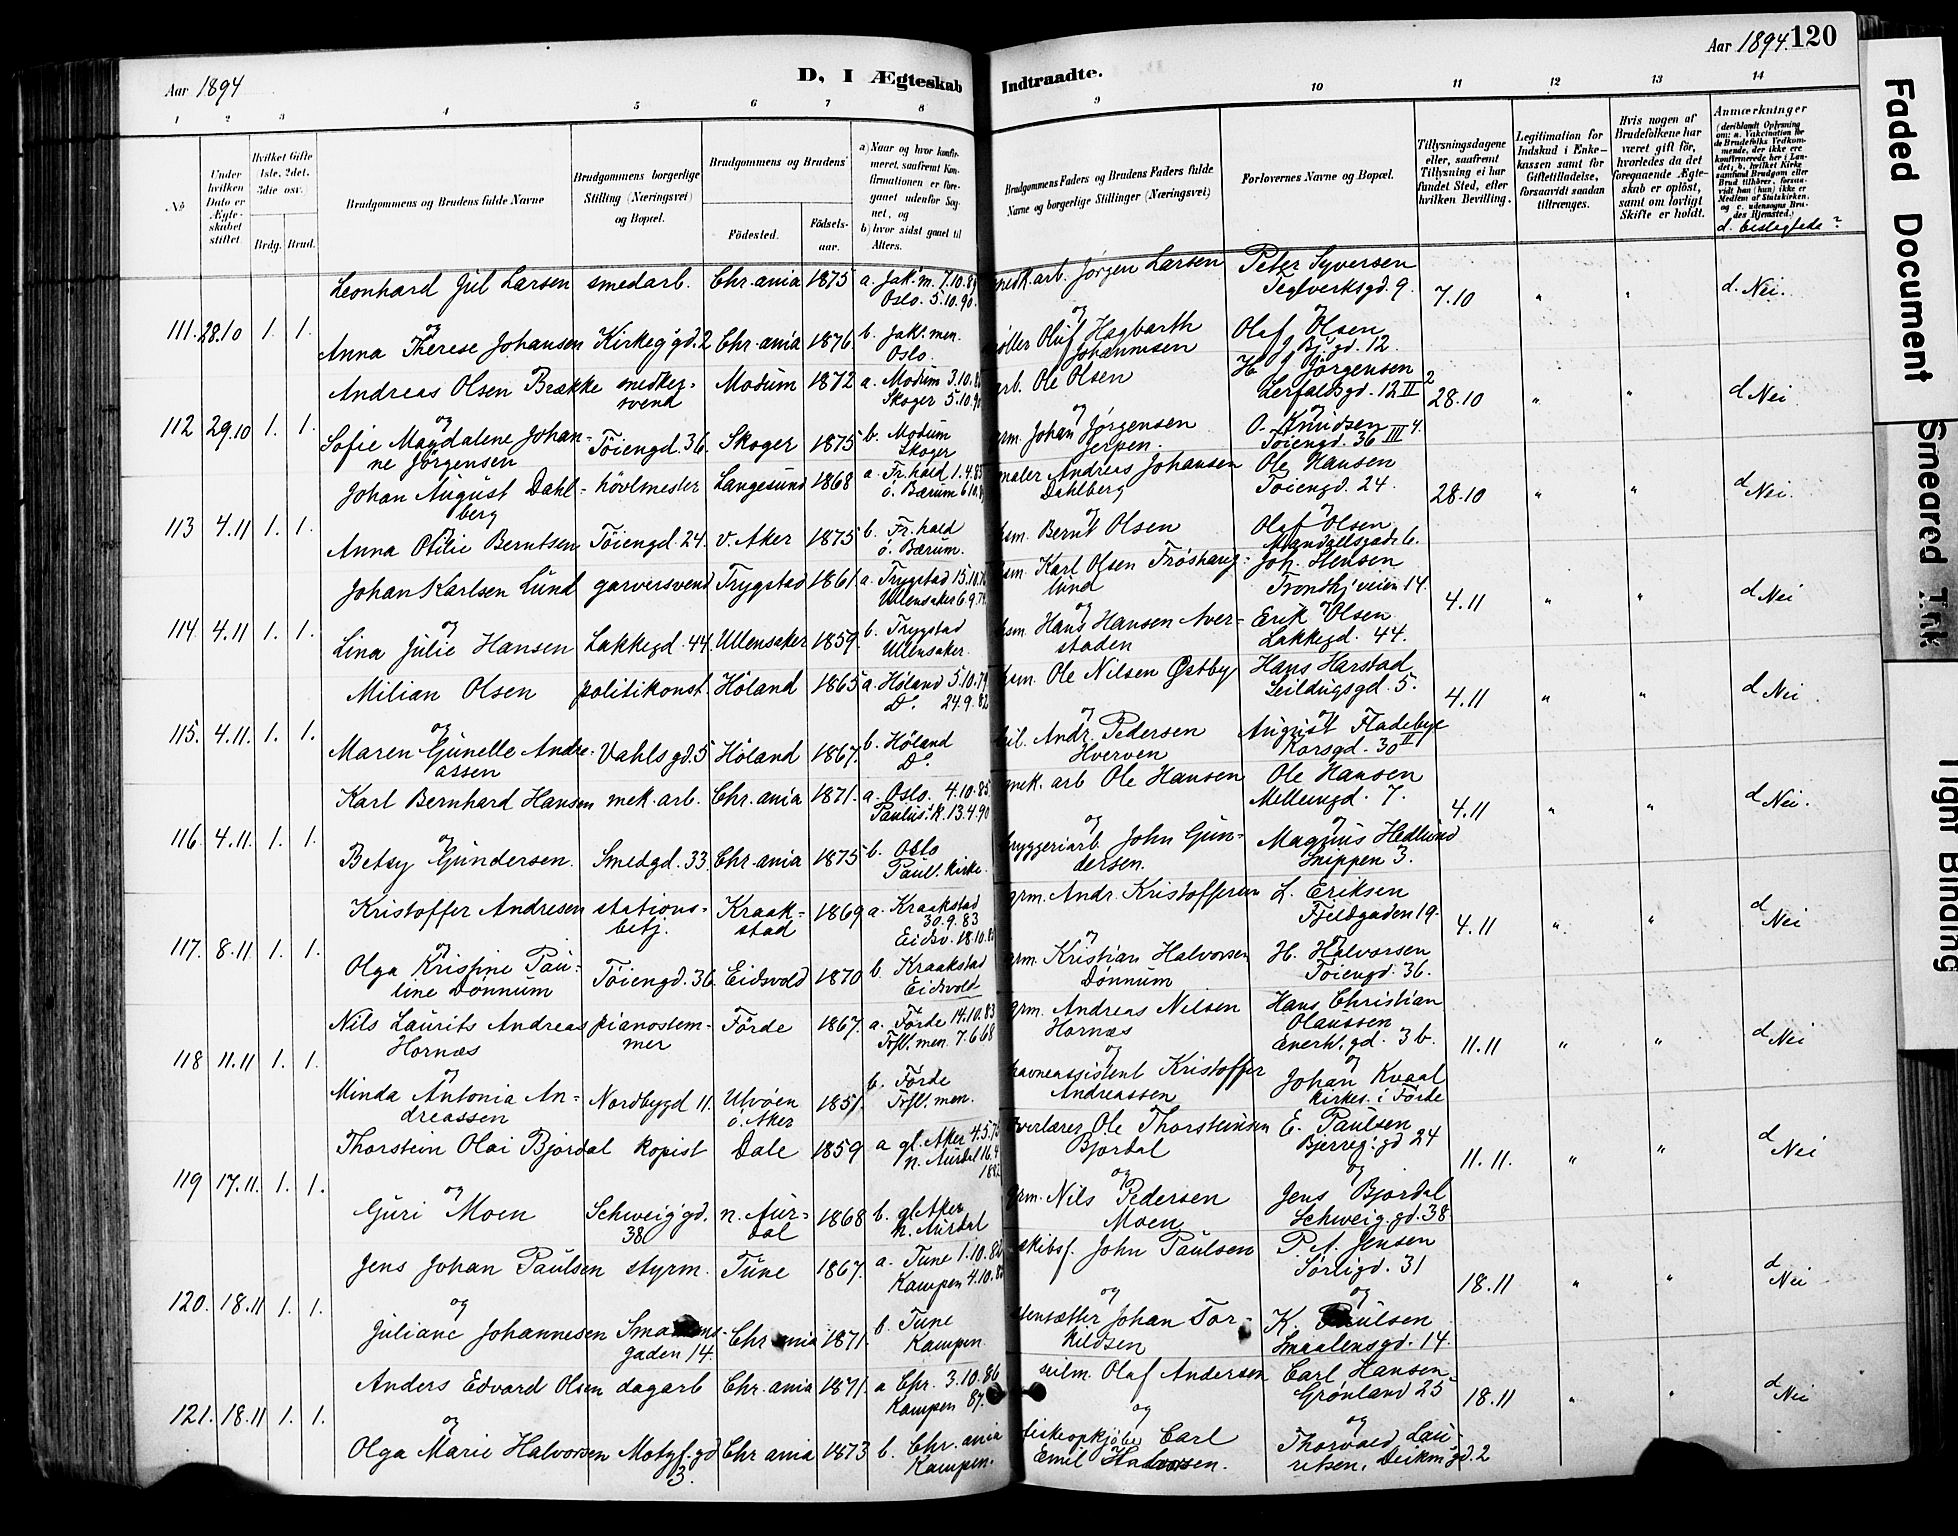 Aar 1894
D, I Ægteskab Indtraadte.
Aar 1894. 120
1 2 3 4 5 6 7 8 9 10 11 12 13 14
No
Under hvilken Dato er Ægteskabet stiftet
Hvilket Gifte 1ste, 2det, 3die osv.
Brdg. Brud.
Brudgommens og Brudens fulde Navne
Brudgommens borgerlige Stilling (Næringsvei) og Bopæl.
Brudgommens og Brudens
Fødested.
Fødsels-aar.
a) Naar og hvor konfirmeret, saafremt Konfirmationen er foregaaet udenfor Sognet, og
b) hvor sidst gaaet til Alters.
Brudgommens Faders og Brudens Faders fulde Navne og borgerlige Stillinger (Næringsvei)
Forlovernes Navne og Bopæl.
Tillysningsdagene eller, saafremt Tillysning ei har fundet Sted, efter hvilken Bevilling.
Legitimation for Indskud i Enkekassen samt for Giftetilladelse, forsaavidt saadan tiltrænges.
Hvis nogen af Brudefolkene har været gift før, hvorledes da det foregaaende Ægteskab er opløst, samt om lovligt Skifte er holdt.
Anmærkninger
(deriblandt Oplysning om: a. Vakcination for de Brudefolks Vedkommende, der ikke ere konfirmerede her i Landet; b. hvilket Kirkesamfund Brudgom eller Brud tilhører, forsaavidt han (hun) ikke er Medlem af Statskirken, og c. udensogns Brudes Hjemsted.)
d. beslægtede?
Leonhard Jul Larsen smedarb. Chr.ania 1875 a. Jak. m. 7.10. Oslo. 5.10.90 arb. Jørgen Larsen Peter Syversen Teglverksgd. 9. 7.10 " " d. Nei.
111. 28.10 1. 1. og
Anna Therese Johansen Kirkeg'gd. 2 Chr.ania 1876 b. Jak. men. Oslo. Oluf Hagbarth Johannesen Olaf Olsen Bj. gd. 12.
Andreas Olsen Brække snedker-svend Modum 1872 a. Modum 3.10. Skoger 5.10. arb. Ole Olsen H. J. Jørgensen Lerfaldsgd. 12 II 28.10 " " d Nei
112 29.10 1. 1. og
Sofie Magdalene Johan-ne Jörgensen Töiengd. 36. Skoger 1875 b. Modum Skoger grm. Johan Jørgensen Jerpen. O. Knudsen Töiengd. 36 III
Johan August Dahl-berg hövlmester Langesund 1868 a. Fr.hald 1.4.83 ö. Bærum 6.10. maler Andreas Johansen Dahlberg Ole Hansen Töiengd. 24. 28.10 " " d Nei.
113 4.11 1. 1. og
Anna Otilie Berntsen Töiengd. 24. v. Aker 1875 b. Fr.hald ö. Bærum. hsm. Bernt Olsen Olaf Olsen Mandallsgad. 6.
Johan Karlsen Lund garversvend Trygstad 1861. a. Trygstad 15.10. Ullensaker 6.9. hsm. Karl Olsen Frøshaug-lund Joh. Jensen Trondhj'veien 14. 4.11 " " d Nei
114. 4.11 1. 1. og
Lina Julie Hansen Lakkegd. 44. Ullensaker 1859. b. Trygstad Ullensaker. hsm. Hans Hansen Aver-staden Erik Olsen Lakkegd. 44.
Milian Olsen politikonst. Höland 1865 a. Höland 5.10.79 Do. 24.9.82 hsm. Ole Nilsen Østby Hans Harstad Seildugsgd. 5. 4.11 " " d Nei
115. 4.11. 1. 1. og
Maren Gunelle Andre-assen Vahlsgd. 5 Höland 1867. b. Höland Do. Andr. Pedersen Hverven August Fladebye Korsgd. 30 II
Karl Bernhard Hansen mek. arb. Chr.ania 1871. a. Oslo. 4.10.85 Paulus' k. 13.4.90 mek. arb Ole Hansen Ole Hansen Mellemgd. 7. 4.11 " " d Nei.
116. 4.11. 1. 1. og
Betsy Gundersen. Smedgd. 33. Chr.ania 1875 b. Oslo Paul. kirke. bryggeriarb. John Gun-dersen. Magnus Hedlund Snippen 3.
Kristoffer Andresen stations-betj. Kraak-stad 1869 a. Kraakstad 30.9.83 Eidsv. 18.10. grm. Andr. Kristoffersen L. Eriksen Fjeldgaden 19. 4.11 " " d Nei
117. 8.11. 1. 1. og
Olga Kristine Pau-line Dönnum Töiengd. 36. Eidsvold 1870 b. Kraakstad Eidsvold grm. Kristian Halvorsen Dönnum H. Halvorsen Töiengd. 36.
Nils Laurits Andreas Hornæs pianostem-mer Förde 1867. a. Förde 14.10.83 Trefl. men. 7.6.68 grm. Andreas Nilsen Hornæs Hans Christian Olaussen Enerh. gd. 3 b. 11.11 " " d Nei
118 11.11 1. 1. og
Minda Antonia An-dreassen Nordbygd 11. Ulvöen ö. Aker 1851. b. Förde Trefl. men. havneassistent Kristoffer Andreassen Johan Kvaal kirkes. i Förde
Thorstein Olai Bjordal kopist Dale 1859 a gl. Aker 4.5. n. Aurdal 16.4 188 overlærer Ole Thorsteinsen Bjordal E. Paulsen Bjerreg'gd 24 11.11. " " d Nei
119 17.11. 1. 1. og
Guri Moen Schweig'gd. 38 n. Aur-dal 1868 b. gl Aker n. Aurdal grm. Nils Pedersen Moen Jens Bjordal Schweig. gd. 38
Jens Johan Paulsen styrm. Tune 1867. a. Tune 1.10. Kampen 4.10. skibsf. John Paulsen P. A. Jensen Sörligd. 31 18.11 " " d Nei
120. 18.11 1. 1. og
Juliane Johannesen Smaalens-gaden 14. Chr.ania 1871. b. Tune Kampen. stensætter Johan Tor-kildsen K. Paulsen Smaalensgd. 14.
Anders Edvard Olsen dagarb Chr.ania 1871. a Chr. 3.10.86 Kampen 87. seilm. Olaf Andersen Carl Hansen Grönland 25 18.11 " " d Nei
121. 18.11 1. 1. og
Olga Marie Halvorsen Motzf. gd 3. Chr ania 1873 b. Chr. ania Kampen. fiskeopkjöber Carl Emil Halvorsen. Thorvald Lau-ritsen. Deikm'gd. 2
Faded Document
Smeared Ink
Tight Binding